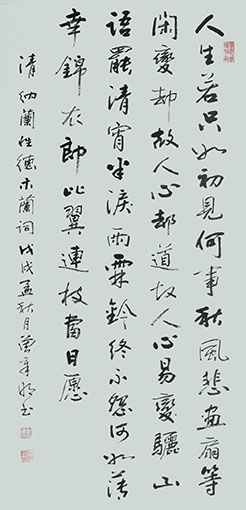 人生若只如初見何事秋風悲畫扇等
閑變却故人心却道故人心易變驪山
語罷清宵半淚雨霖鈴終不怨何如薄
幸錦衣郎比翼連枝當日愿
清納蘭性德木蘭詞戊戌孟秋月書